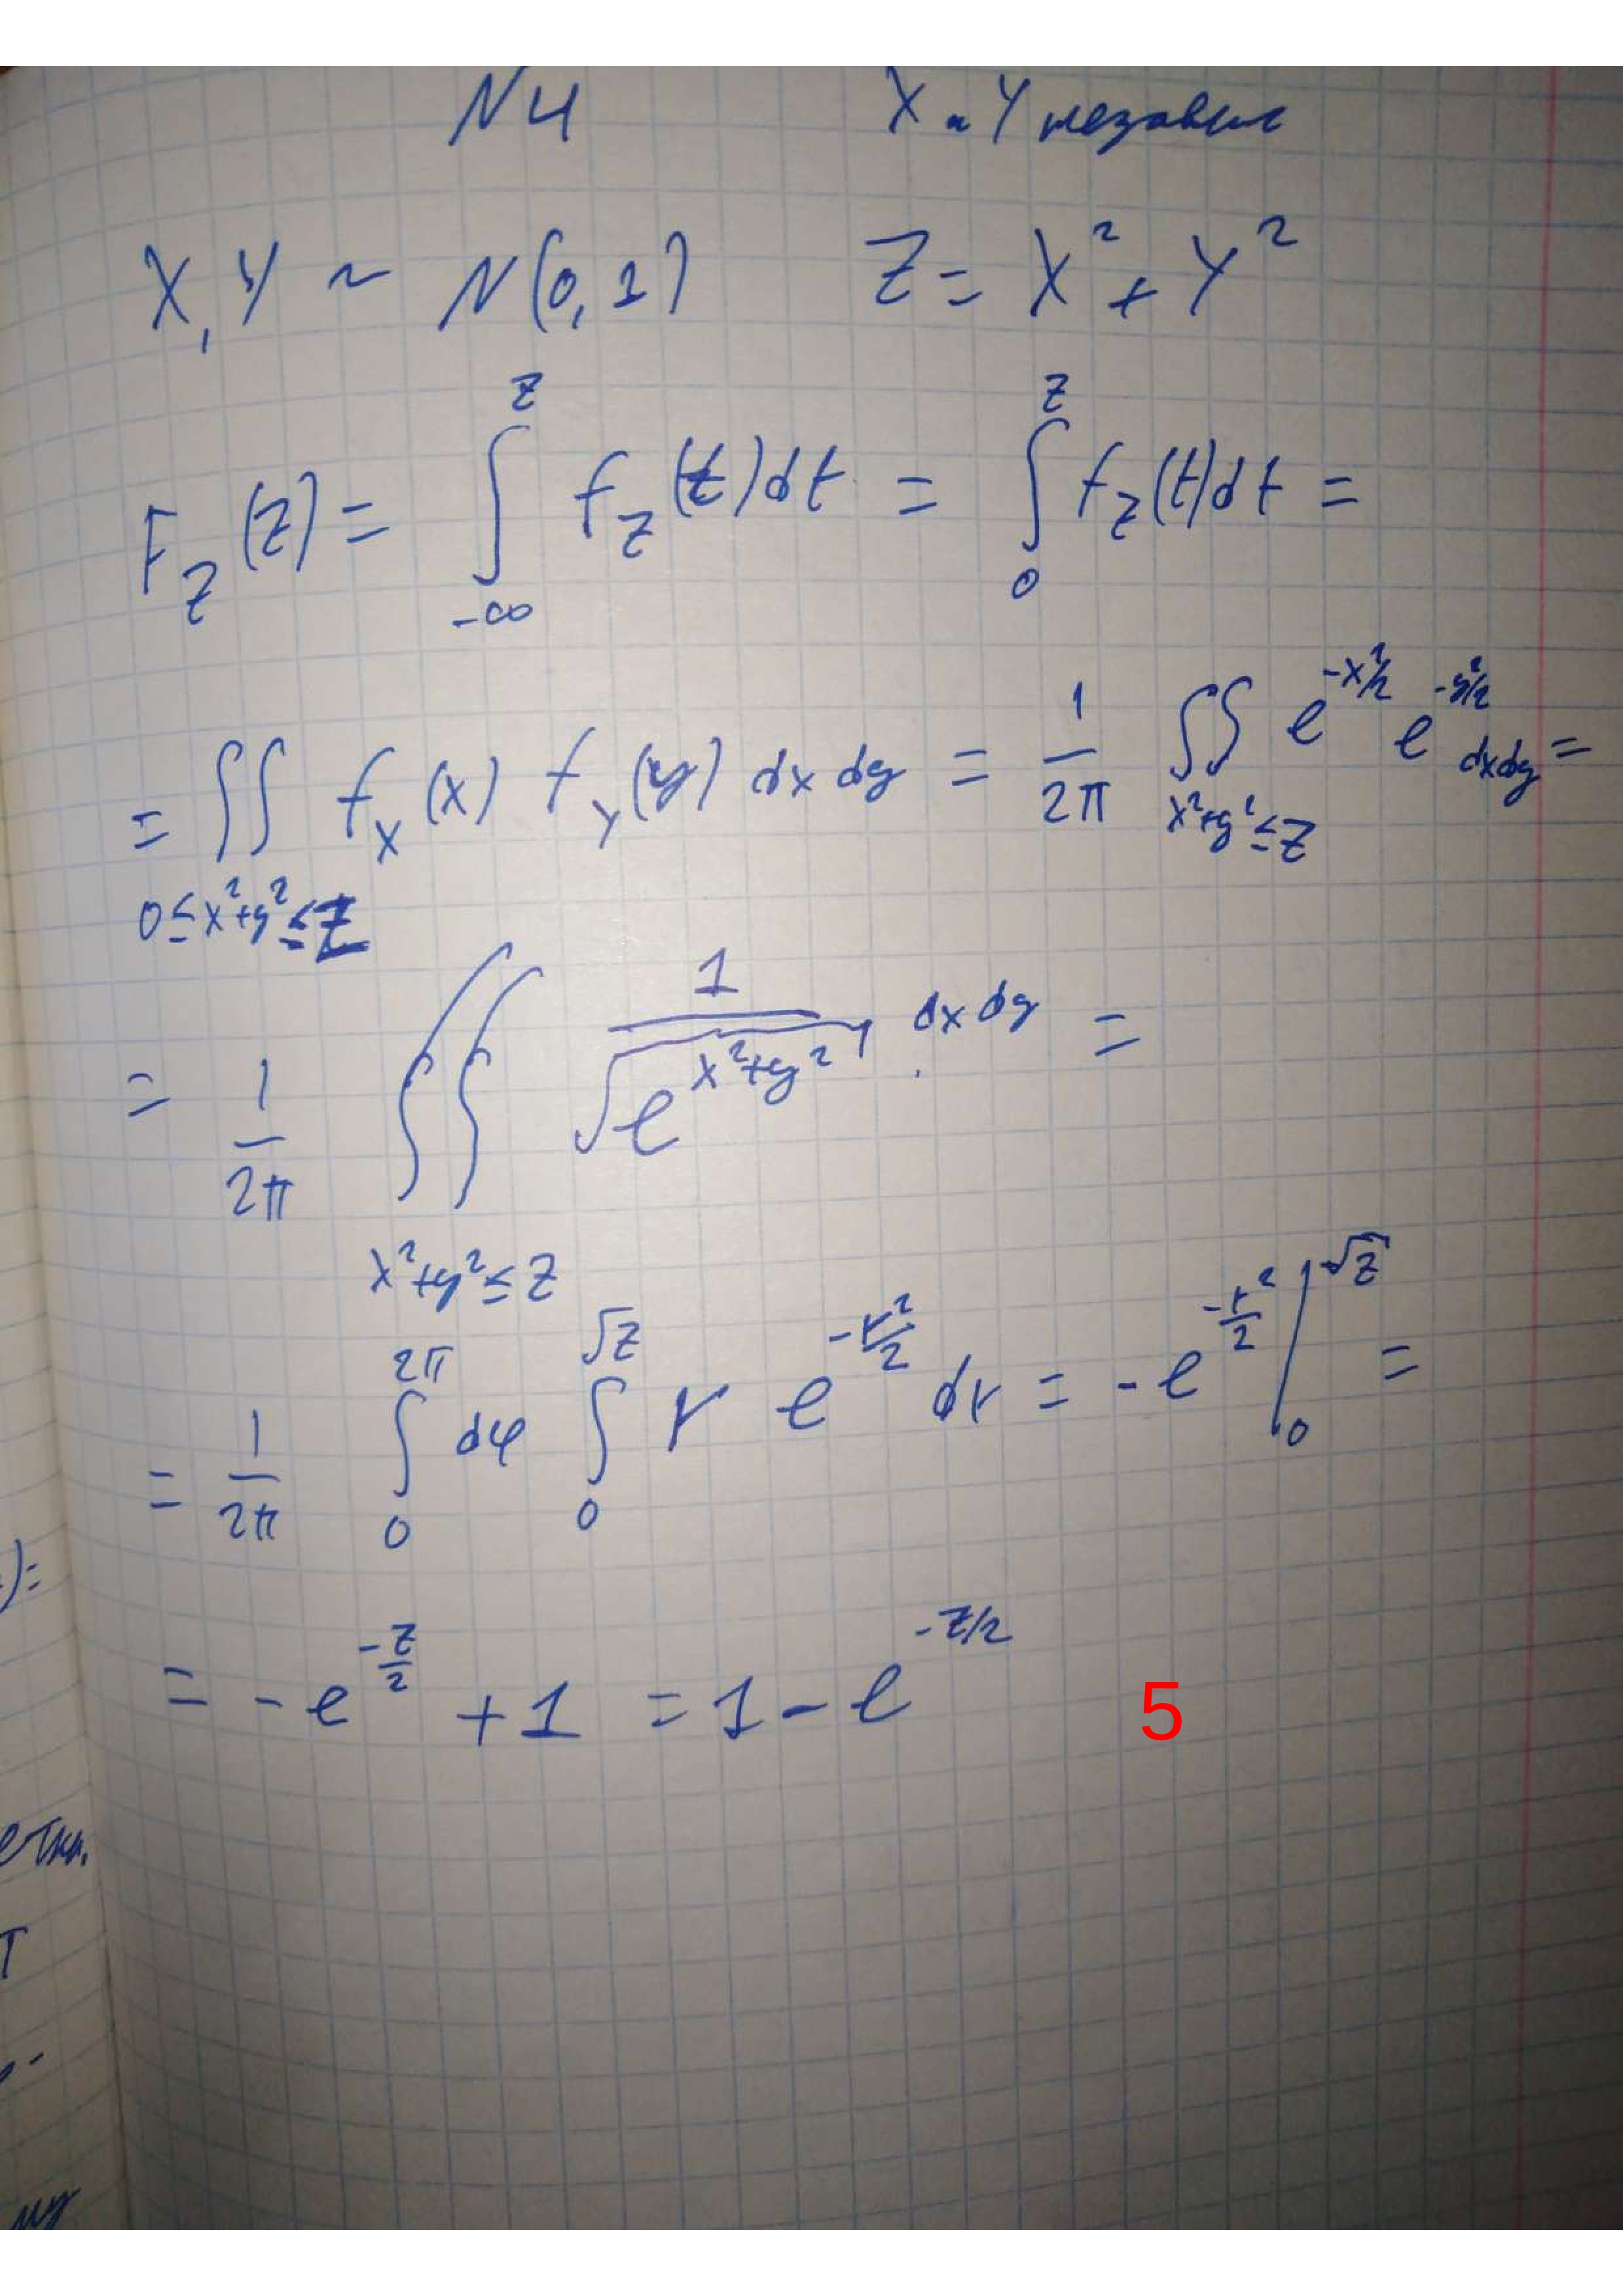 N4 X и Y независ
X, Y ~ N(0,1) Z = X² + Y²
F_Z(z) = ∫_{-∞}^{z} f_Z(t)dt = ∫_0^z f_Z(t)dt =
= ∬_{0≤x²+y²≤z} f_X(x) f_Y(y) dx dy = 1/2π ∬_{x²+y²≤z} e^{-x²/2} e^{-y²/2} dxdy =
= 1/2π ∬_{x²+y²≤z} 1/√(e^{x²+y²}) dx dy =
= 1/2π ∫_0^{2π} dφ ∫_0^{√z} r e^{-r²/2} dr = -e^{-r²/2} |_0^{√z} =
= -e^{-z/2} + 1 = 1 - e^{-z/2} 5
):=
т